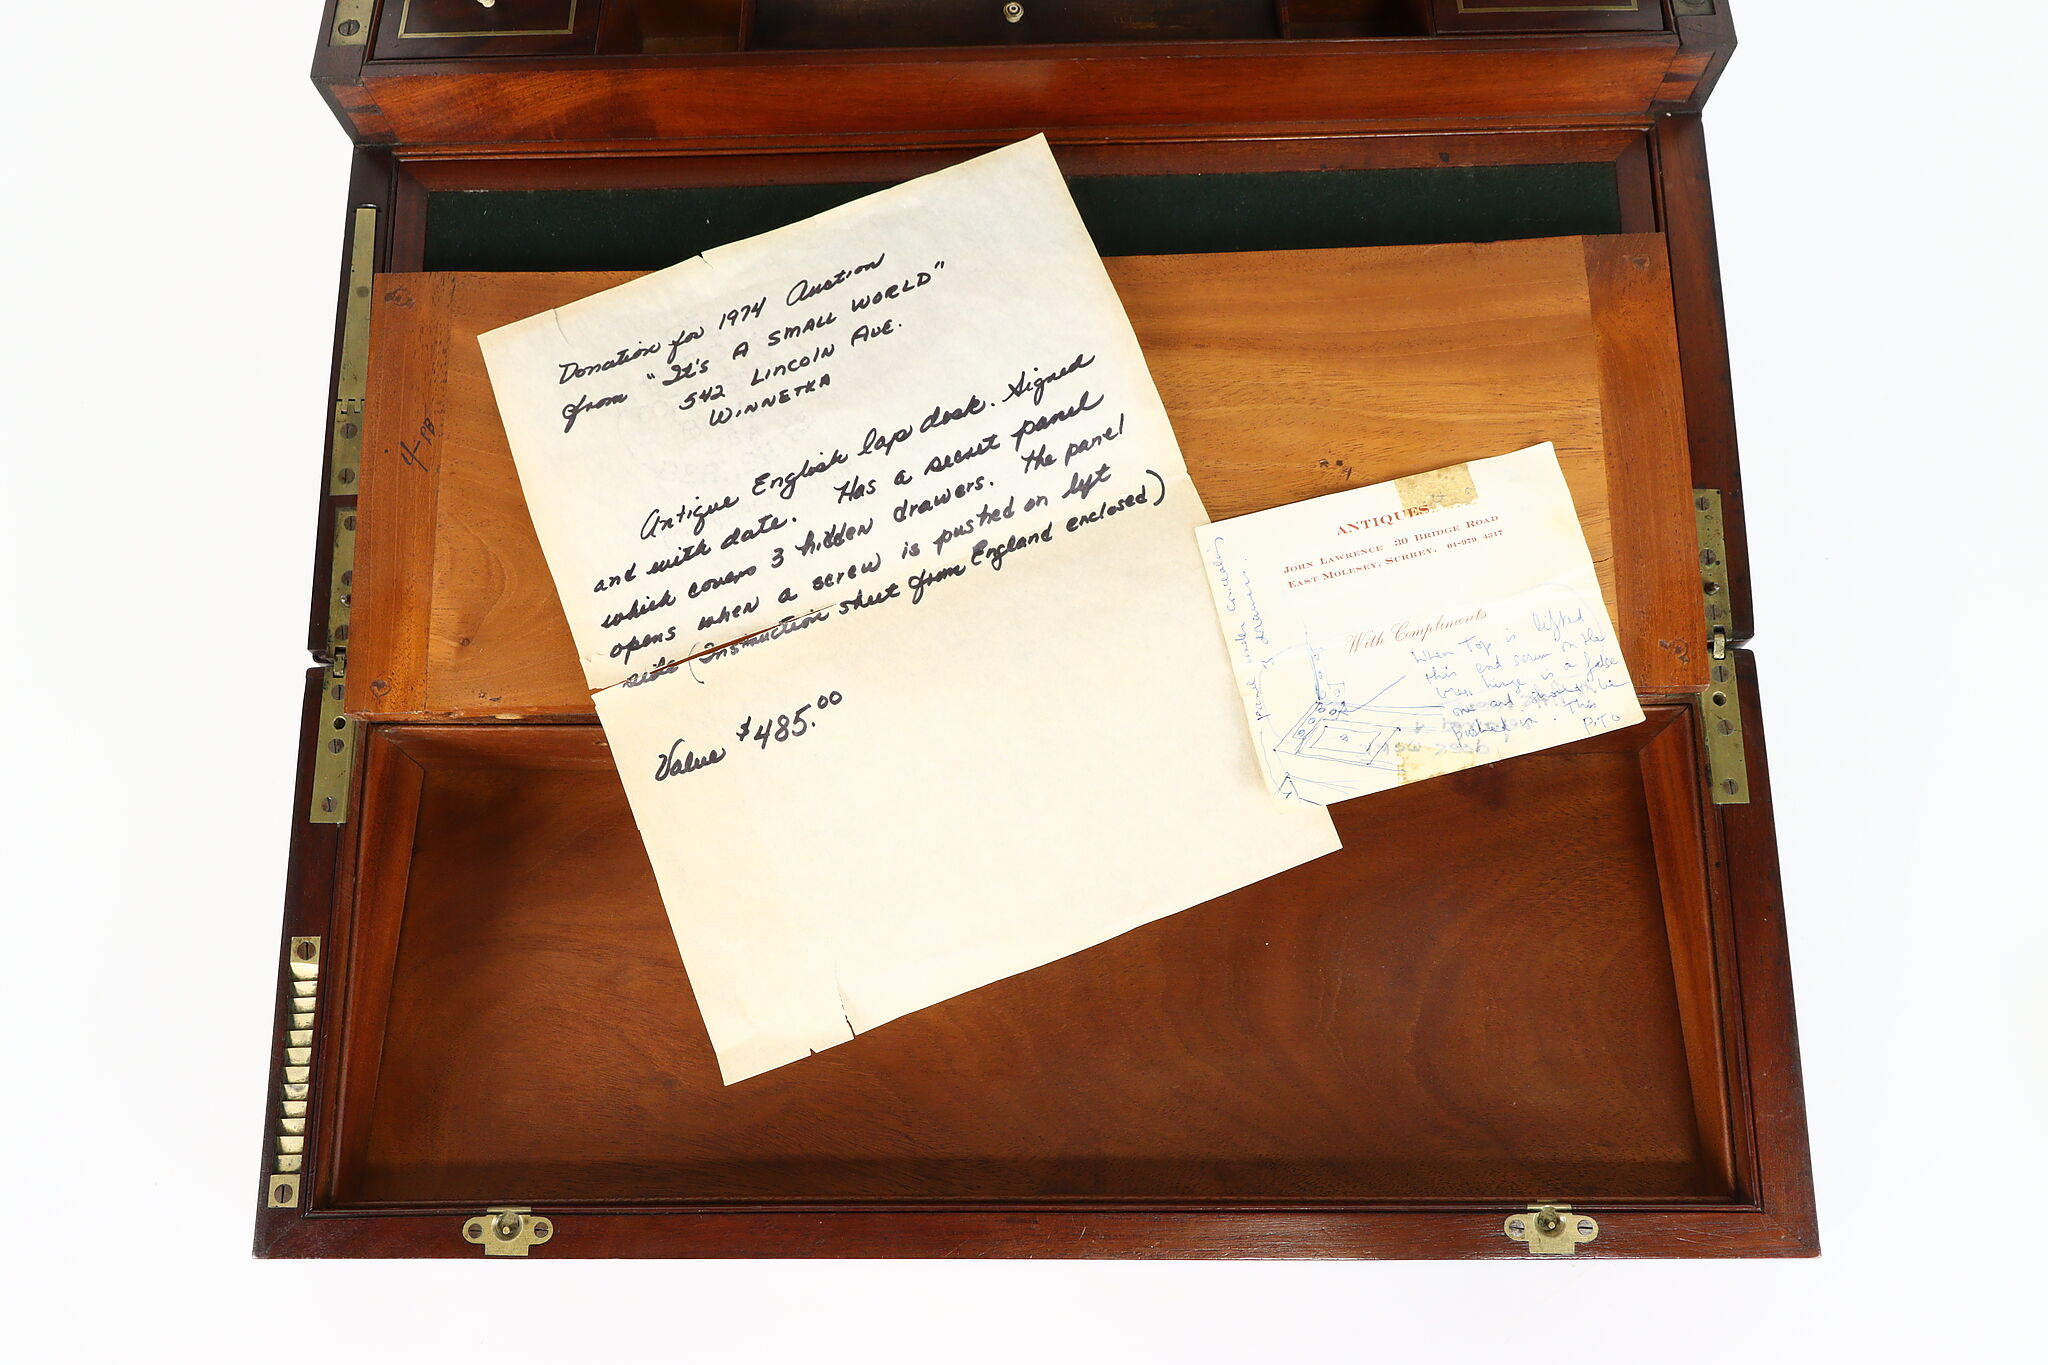 Donation for 1974 Auction
from "It's A SMALL WORLD"
542 LINCOLN AVE.
WINNETKA
Antique English lap desk. Signed
and with date. Has a secret panel
which covers 3 hidden drawers. The panel
opens when a screw is pushed on left
side (Instruction sheet from England enclosed)
Value $485.00
4-PB
ANTIQUES
JOHN LAWRENCE 30 BRIDGE ROAD
EAST MOLESEY, SURREY. 01-979 4317
With Compliments
When Top is lifted
this end screw on the
brass hinge is a false
one and should be
pushed in. This
P.T.O
panel under concealing
3 drawers.